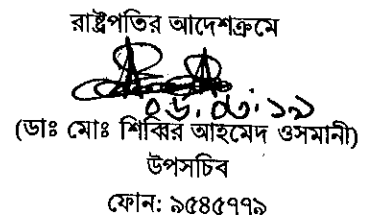 রাষ্ট্রপতির আদেশক্রমে
(ডাঃ মোঃ শিব্বির আহমেদ ওসমানী)
উপসচিব
ফোন: ৯৫৪৫৭৭৯